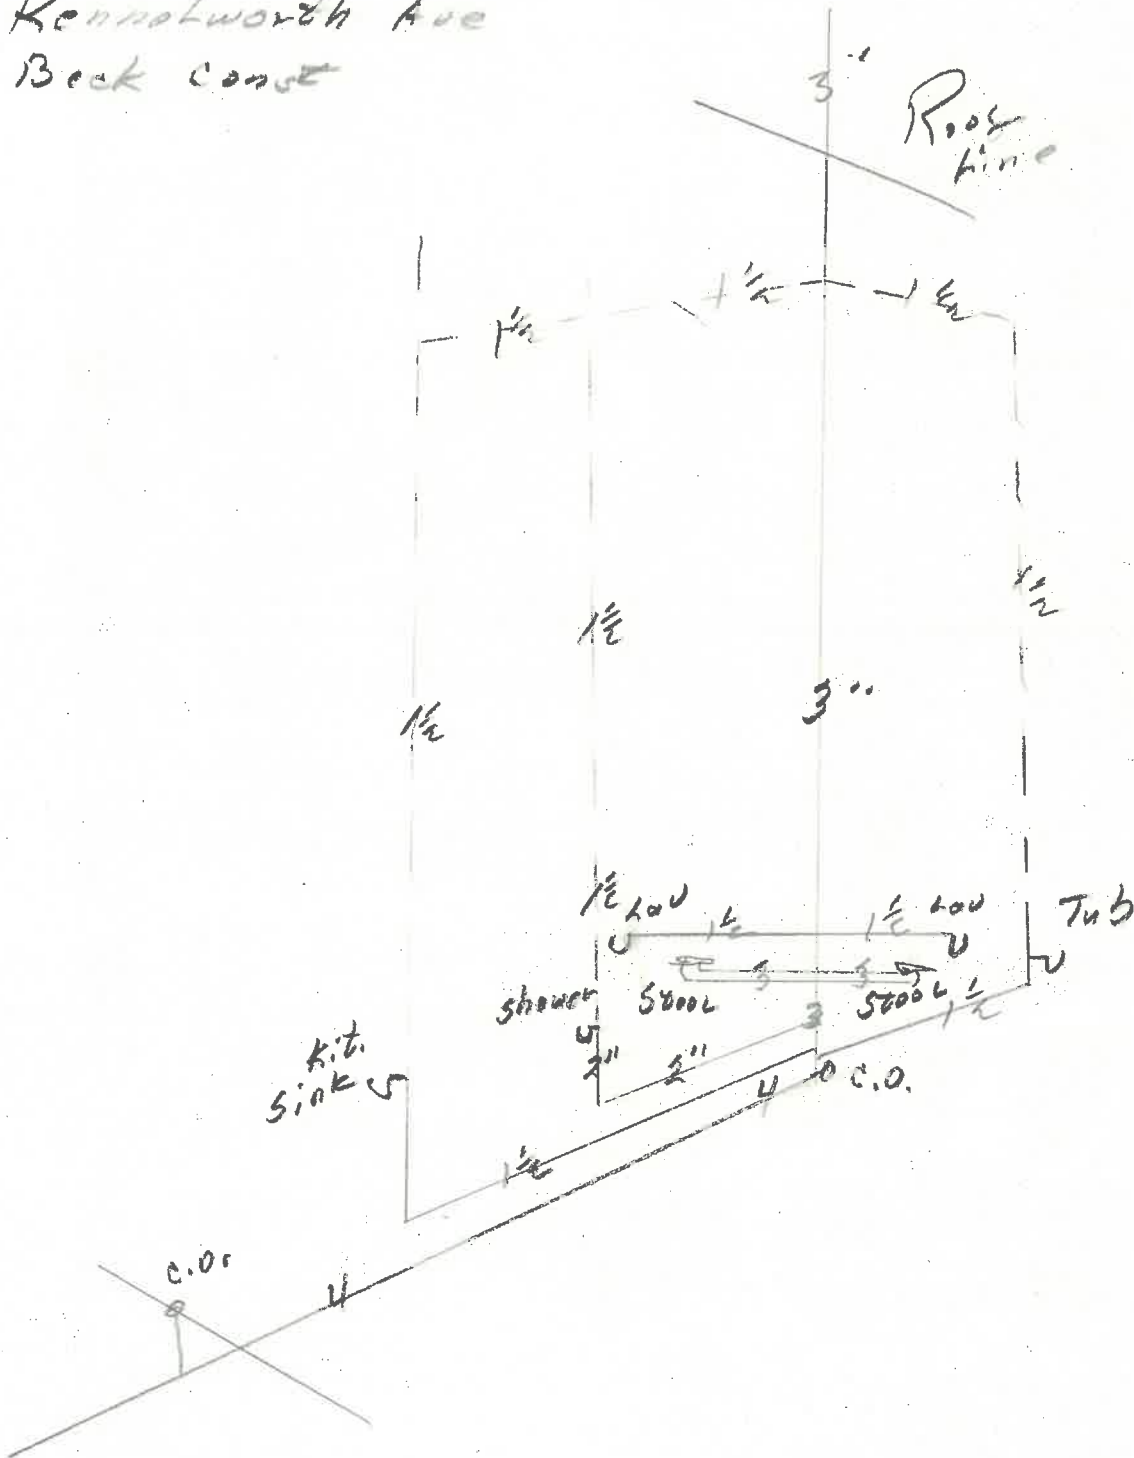 Kennolworth Ave
Beck Const
3"
Roof
Line
1 1/2
1 1/2
1 1/2
1 1/2
1 1/2
3"
1 1/2
1 1/2
Lav
1 1/2
1 1/2 Lav
Tub
3
3
shower
Stool
Stool
1 1/2
3
2"
2"
Kit.
sink
4
C.O.
1 1/2
C.O.
4